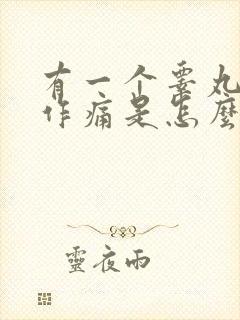 有一个睾丸
作痛是怎麼
靈夜雨